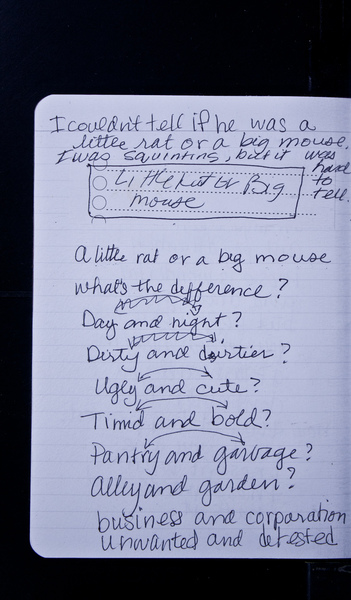 I couldn't tell if he was a
little rat or a big mouse.
I was squinting, but it was
hard
to
tell.
Little Rat or Big
mouse
A little rat or a big mouse
what's the difference?
Day and night?
Dirty and dirtier?
Ugly and cute?
Timid and bold?
Pantry and garbage?
Alley and garden?
business and corporation
unwanted and detested